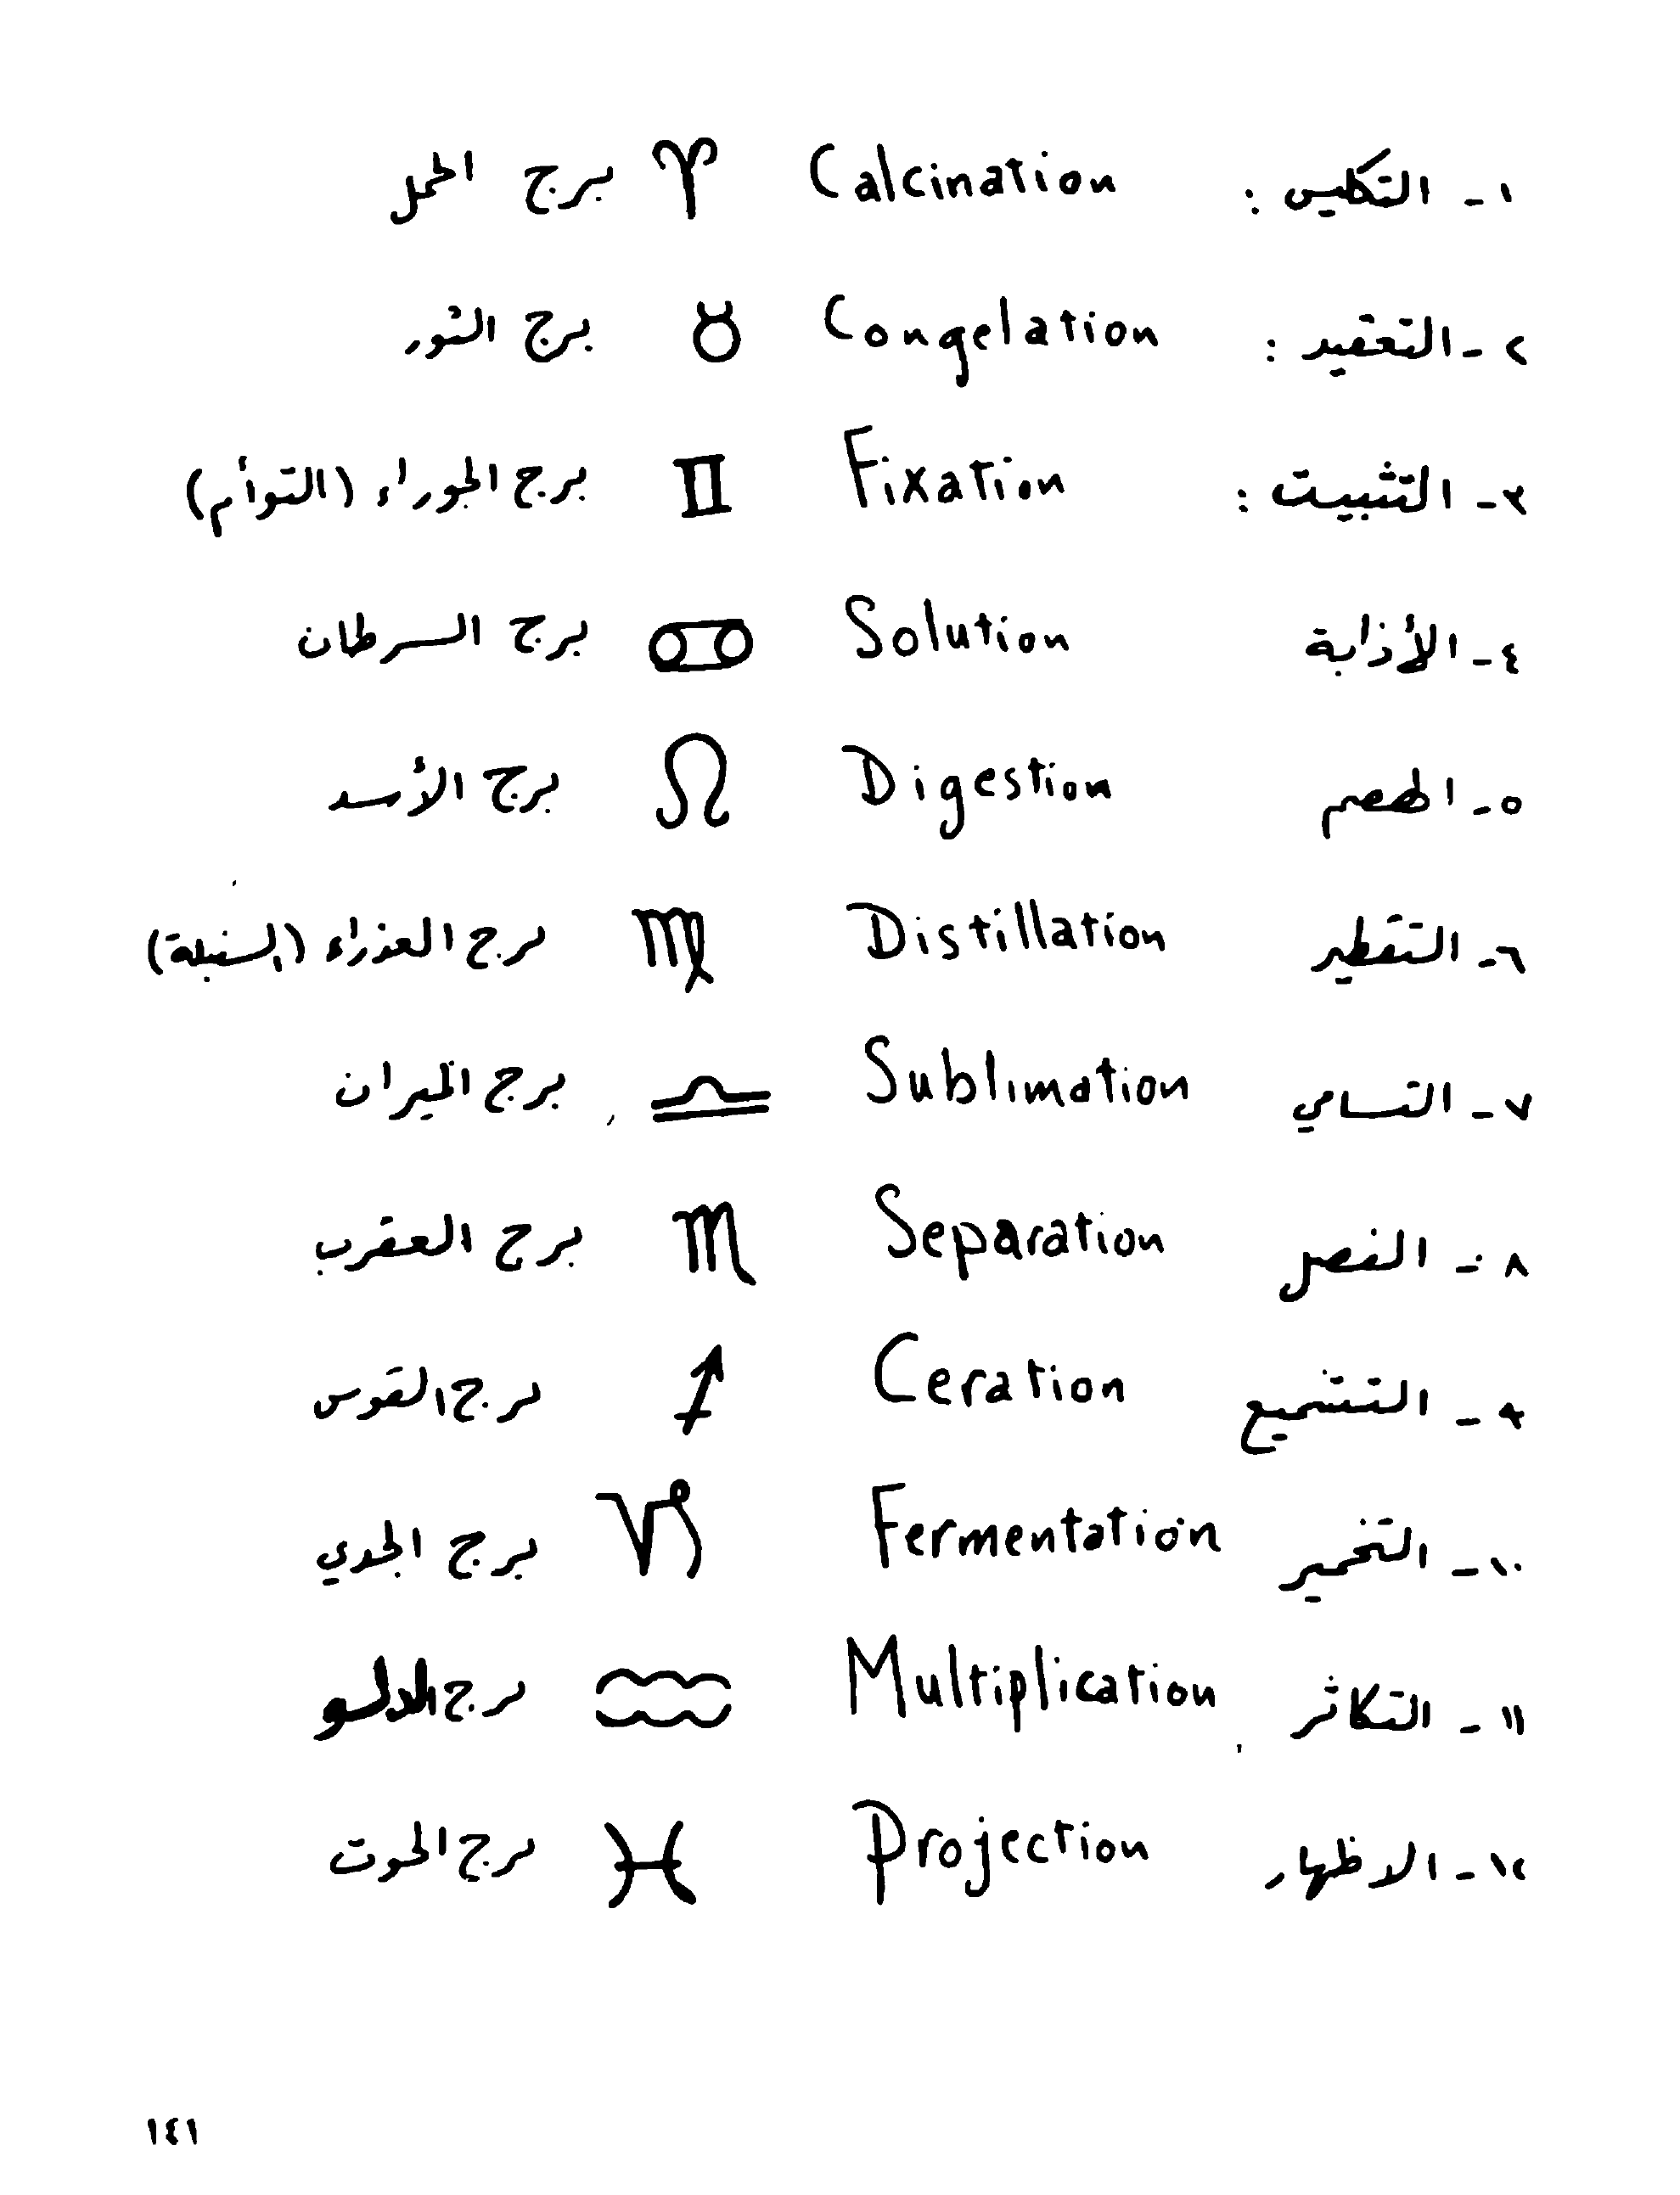 ١- التكليس : Calcination ♈ برج الحمل
٢- التعقيد : Congelation ♉ برج الثور
٣- التثبيت : Fixation ♊ برج الجوزاء (التوأم)
٤- الأذابة Solution ♋ برج السرطان
٥- الهضم Digestion ♌ برج الأسد
٦- التقطير Distillation ♍ برج العذراء (السنبلة)
٧- التسامي Sublimation ♎ برج الميزان
٨- الفصل Separation ♏ برج العقرب
٩- التشميع Ceration ♐ برج القوس
١٠- التخمير Fermentation ♑ برج الجدي
١١- التكاثر Multiplication ♒ برج الدلو
١٢- الاظهار Projection ♓ برج الحوت
١٤١